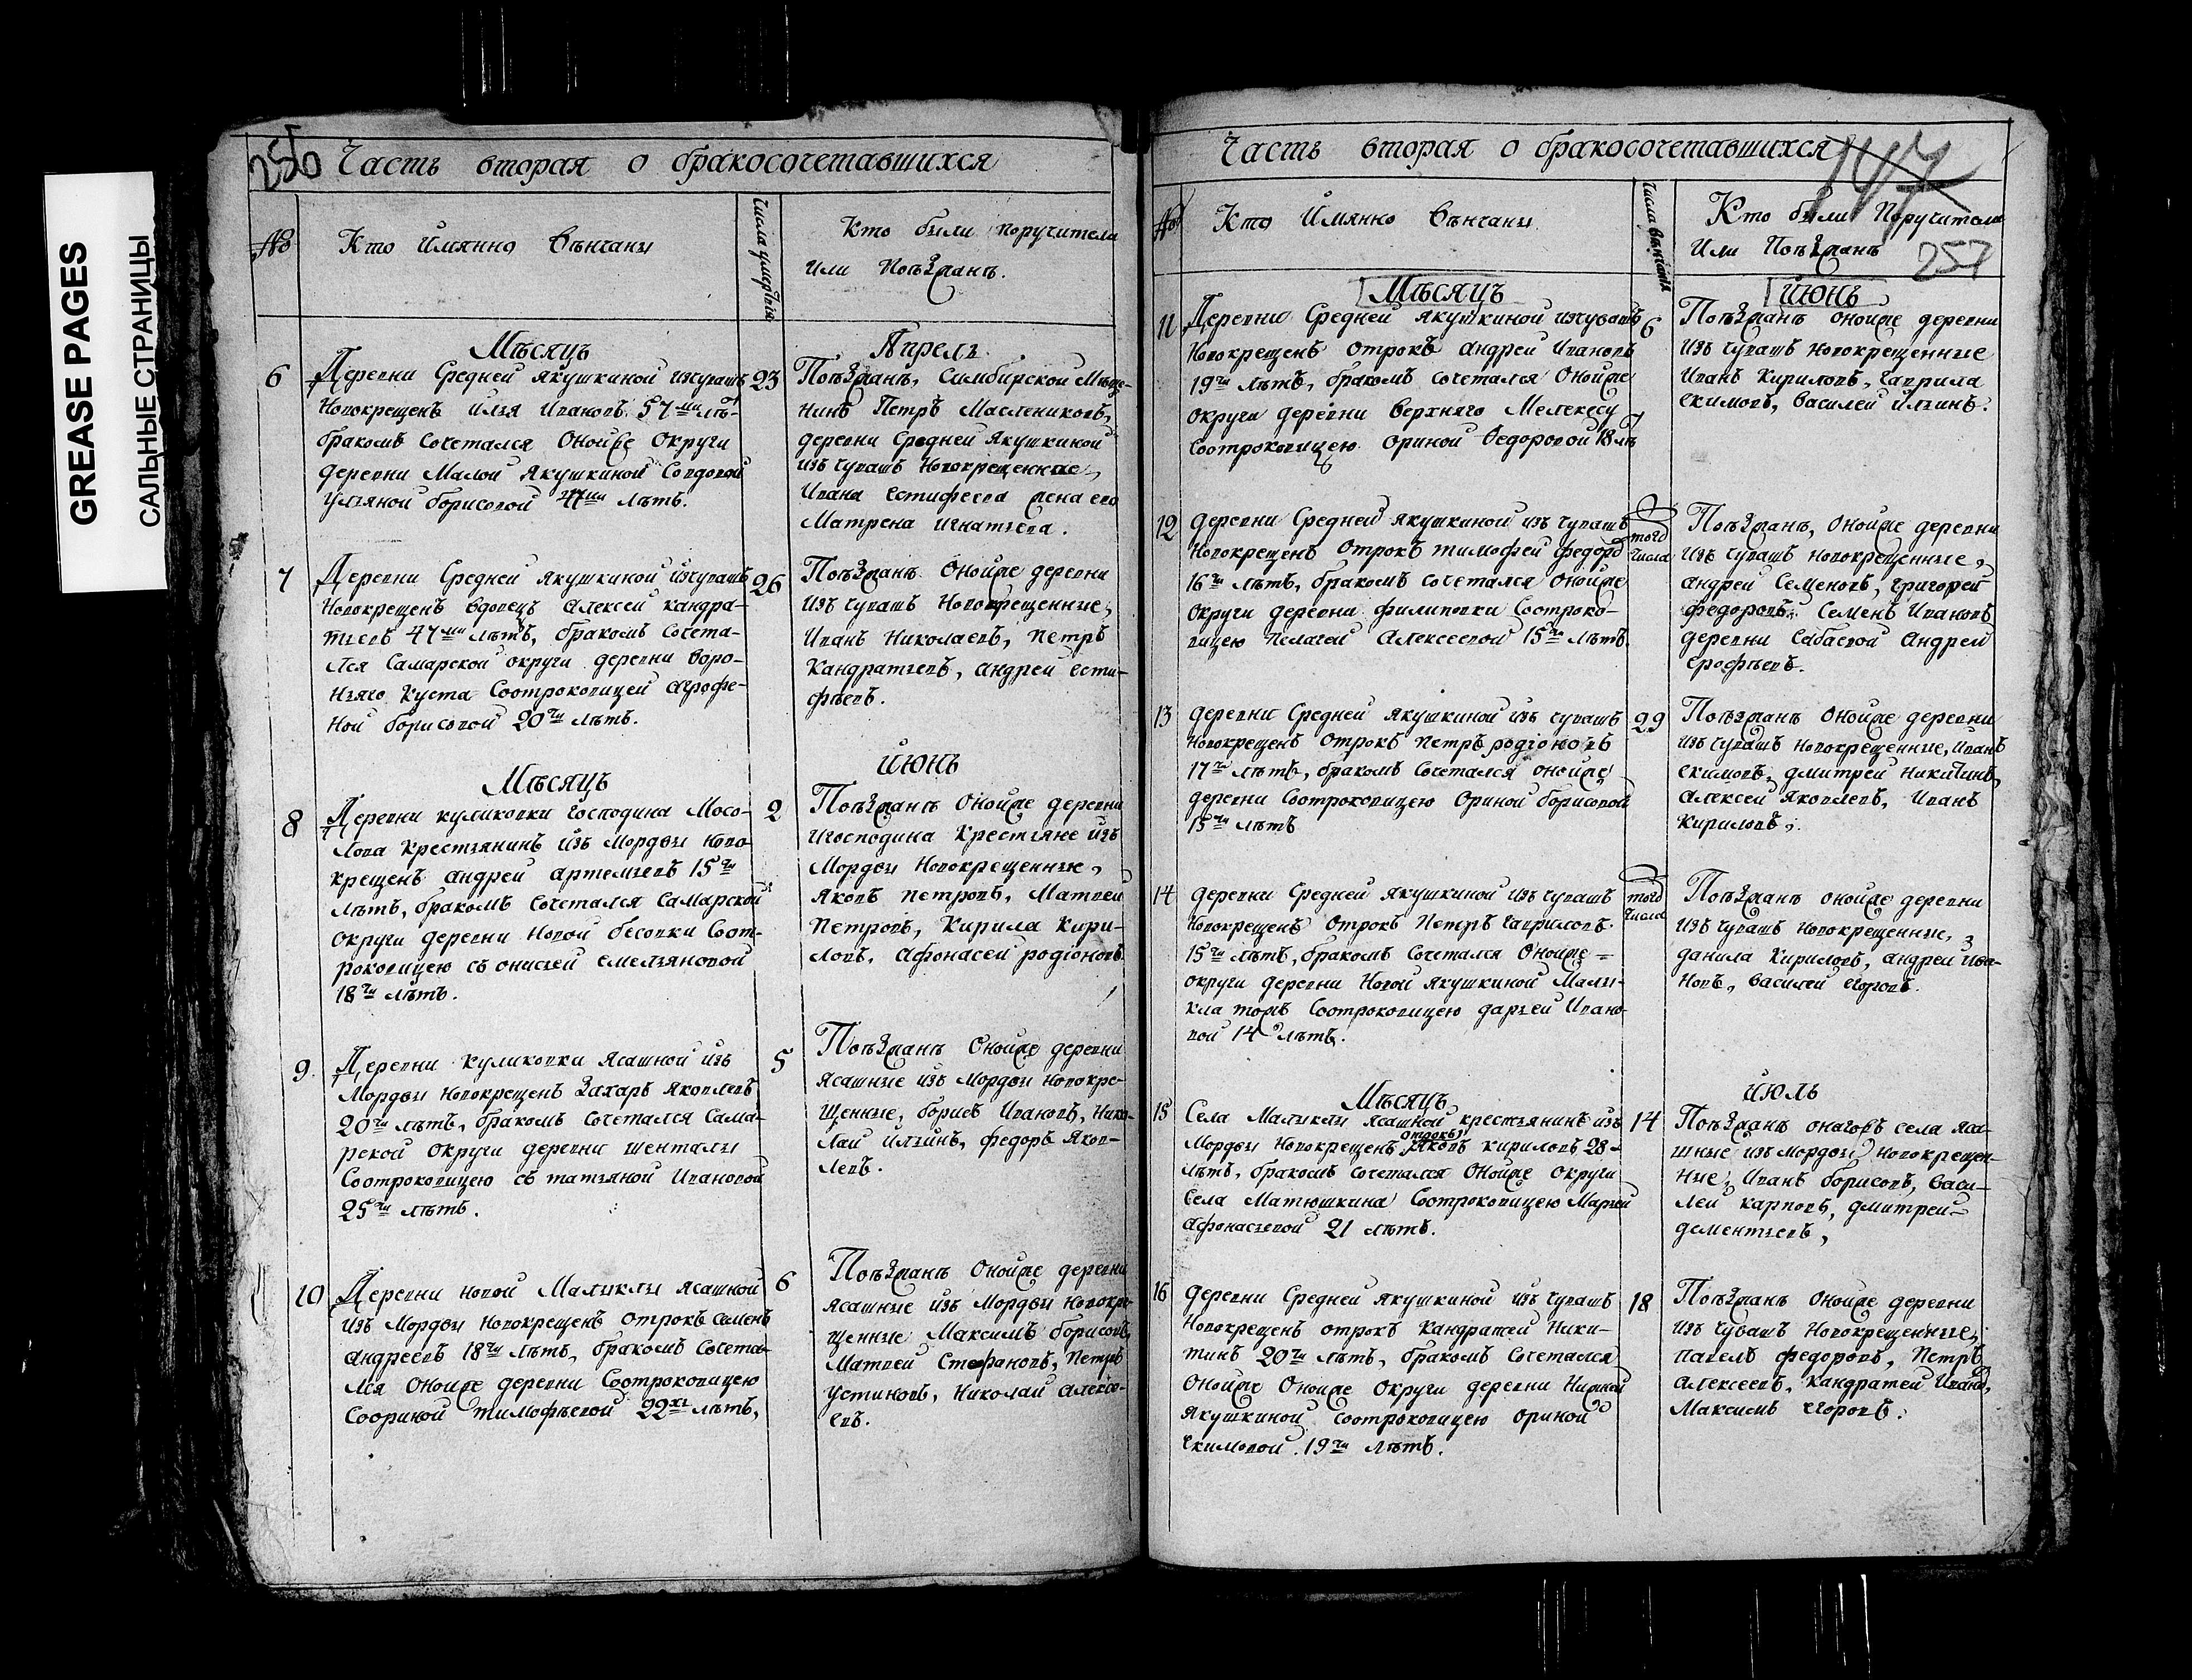 GREASE PAGES
САЛЬНЫЕ СТРАНИЦЫ
256
Часть вторая о бракосочетавшихся
№
Кто имянно венчаны
Кто были поручители
или Поѣзжанъ.
Мѣсяцъ
Апрель
6
Деревни Средней Якушкиной изчувашъ
Новокрещенъ илья Ивановъ 57ми лѣ-
бракомъ Сочетался Оной же Округи
деревни Малой Якушкиной Солдовой
ульяной борисовой 47ми лѣтъ.
23
Поѣзжанъ, Симбирской Мѣще-
нинъ Петръ Маслениковъ,
деревни Средней Якушкиной
изъ чувашъ Новокрещенные,
Ивана Естифеева жена ево
Матрена игнатьева.
7
Деревни Средней Якушкиной изчувашъ
Новокрещенъ вдовецъ Алексей кандра-
тьевъ 47ми лѣтъ, бракомъ Сочета-
лся Самарской округи деревни воро-
ньяго Куста Соотроковицей Агрофе-
ной борисовой 20ти лѣтъ.
26
Поѣзжанъ Оной же деревни
изъ чувашъ Новокрещенные,
Иванъ Николаевъ, петръ
Кандратьевъ, андрей ести-
фѣевъ.
Мѣсяцъ
июнь
8
Деревни куликовки господина Мосо-
лова крестьянинъ изъ Мордвы ново-
крещенъ андрей артемьевъ 15ти
лѣтъ, бракомъ Сочетался Самарской
округи деревни Новой бесовки Соот-
роковицею съ онисьей емельяновой
18ти лѣтъ.
2
Поѣзжанъ Оной же деревни
игосподина Крестьяне изъ
Мордвы Новокрещенные,
яковъ петровъ, Матвей
Петровъ, Кирила Кири-
ловъ, Афонасей родионовъ
9
Деревни куликовки Ясашной изъ
Мордвы Новокрещенъ Захаръ яковлевъ
20ти лѣтъ, бракомъ сочетался Сама-
рской Округи деревни шенталы
Соотроковицею съ татьяной Ивановой
25ти лѣтъ.
5
Поѣзжанъ Оной же деревни
ясашные изъ Мордвы новокре-
щенные, борисъ Ивановъ, Нико-
лай ильинъ, федоръ яков-
левъ.
10
Деревни новой Малыклы ясашной
изъ Мордвы новокрещенъ отрокъ семенъ
андреевъ 18ти лѣтъ, бракомъ Сочета-
лся Оной же деревни Соотроковицею
Соориной тимофѣевой 22хъ лѣтъ,
6
Поѣзжанъ Оной же деревни
ясашные изъ Мордвы новокре-
щенные Максимъ борисовъ,
Матвей Стефановъ, петръ
устиновъ, Николай алексе-
евъ.
Часть вторая о бракосочетавшихся
147
257
№
Кто имянно венчаны
числа венчания
Кто были Поручители
или Поѣзжанъ
Мѣсяцъ
июнь
11
Деревни Средней якушкиной изчувашъ
Новокрещенъ отрокъ андрей Ивановъ
19ти лѣтъ, бракомъ сочетался Оной же
округи деревни верхняго Мелекесу
соотроковицею ориной Федоровой 18 лѣ
6
Поѣзжанъ оной же деревни
изъ чувашъ новокрещенные
Иванъ Кириловъ, гаврила
екимовъ, василей ильинъ.
12
деревни Средней якушкиной изъ чувашъ
Новокрещенъ Отрокъ тимофей федоро
16ти лѣтъ, бракомъ сочетался оной же
Округи деревни филиповки Соотроко-
вицею пелагеей алексеевой 15ти лѣтъ
того
числа
Поѣзжанъ, Оной же деревни
изъ чувашъ новокрещенные,
андрей Семеновъ, григорей
федоровъ, Семенъ Ивановъ
деревни Сабаевой Андрей
ерофѣевъ.
13
деревни Средней якушкиной изъ чувашъ
новокрещенъ отрокъ петръ родионовъ
17ти лѣтъ, бракомъ Сочетался оной же
деревни Соотроковицею Ориной борисовой
15ти лѣтъ
29
Поѣзжанъ Оной же деревни
изъ чувашъ новокрещенные, иванъ
екимовъ, дмитрей никитинъ,
алексей яковлевъ, Иванъ
Кириловъ,
14
деревни Средней якушкиной изъ чувашъ
Новокрещенъ Отрокъ Петръ гавриловъ
15ти лѣтъ, бракомъ Сочетался Оной же =
округи деревни Новой якушкиной Малы-
кла томъ Соотроковицею дарьей Ивано-
вой 14 лѣтъ.
того
числа
Поѣзжанъ оной же деревни
изъ чувашъ новокрещенные,
данила Кириловъ, андрей ива-
новъ, василей егоровъ.
Мѣсяцъ
июль
15
Села Малыклы ясашной крестьянинъ изъ
Мордвы Новокрещенъ отрокъ яковъ кириловъ 28-
лѣтъ, бракомъ сочетался Оной же Округи
села Матюшкина Соотроковицею Марьей
афонасьевой 21 лѣтъ.
14
Поѣзжанъ онагожъ села яса-
шные изъ мордвы новокрещен-
ные, Иванъ борисовъ, васи-
лей карповъ, дмитрей=
дементьевъ,
16
деревни Средней якушкиной изъ чувашъ
Новокрещенъ отрокъ Кандратей Ники-
тинъ 20ти лѣтъ, бракомъ Сочетался
Оной же Оной же Округи деревни Нижной
якушкиной Соотроковицею ориной
екимовой 19ти лѣтъ.
18
Поѣзжанъ Оной же деревни
изъ чувашъ Новокрещенные,
павелъ федоровъ, Петръ
алексеевъ, кандратей Ивано,
Максимъ егоровъ.